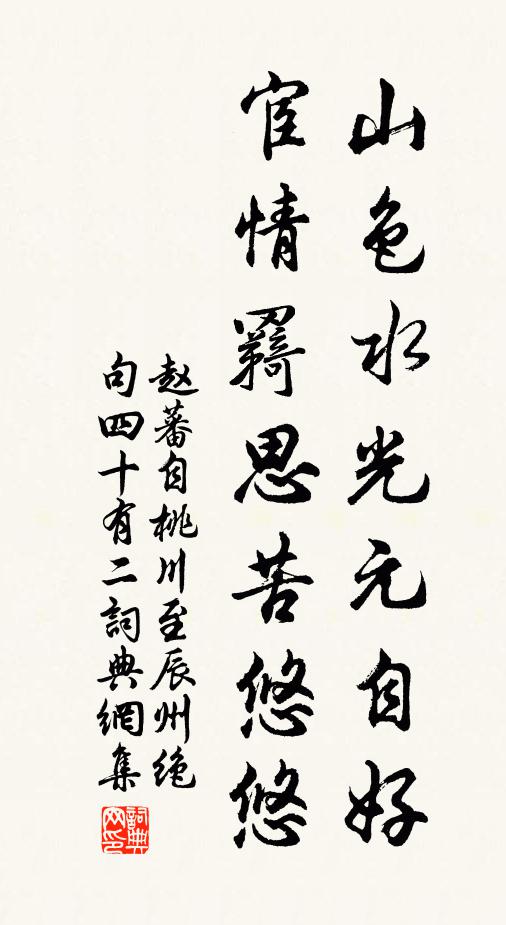 山色水光元自好
宦情羇思苦悠悠
赵蕃自桃川至辰州绝
句四十有二詞典網集
詞典网印